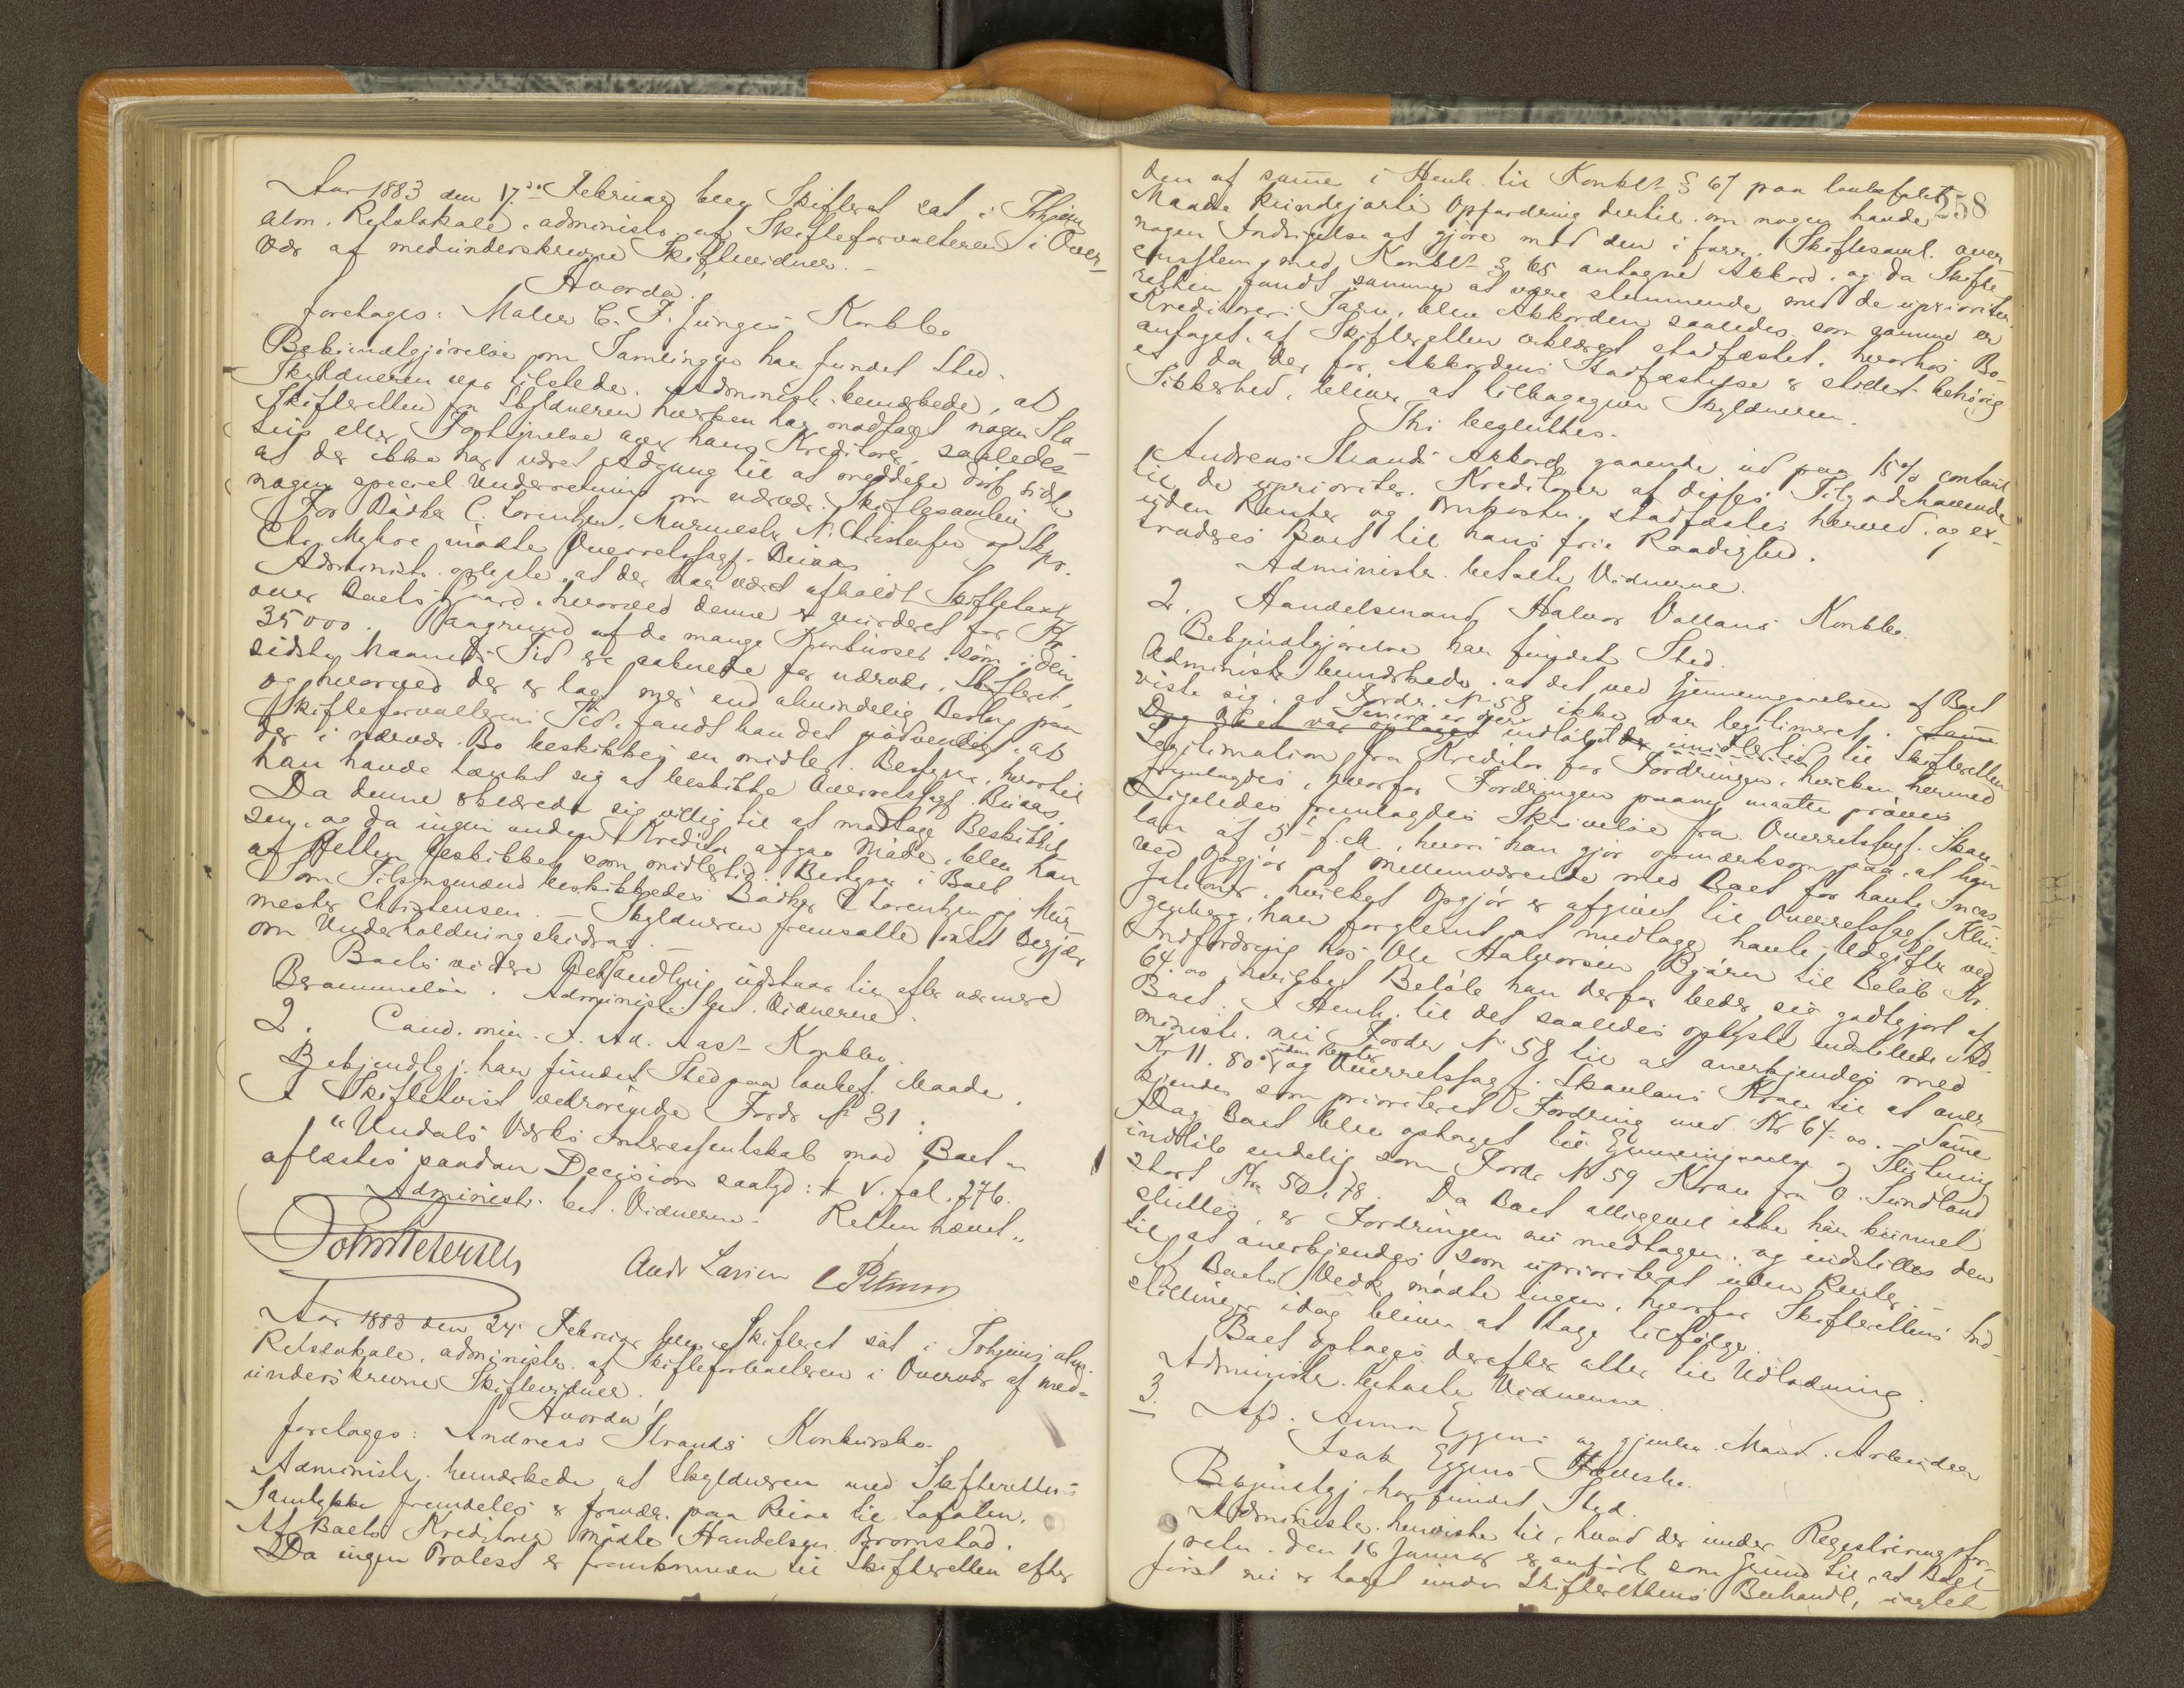 Aar 1883 den 17de Februar blev Skifteret sat i Thjems
alm. Retslokale, administr. af Skifteforvalteren i Over-
vær af medunderskrevne Skiftevidner. –
Hvorda!
foretages: Maler C. F. Junges Konkbo
Bekjendtgjørelse om Samlingen har fundet Sted.
Skyldneren var tilstede. Administr. bemærkede, at
Skifteretten fra Skyldneren hverken har modtaget nogen Sta-
tus eller Fortegnelse over hans Kreditorer, saaledes
at der ikke har været Adgang til at meddele disse
nogen speciel Underretning om nærvær. Skiftesamling
For Bødker C. Lorentzen, Murmester N. Christensen og Skpr.
Chr. Myhre mødte Overretssagf. Buaas
Administr. oplyste, at der har været afholdt Skiftetaxt
over Boets Gaard, hvorved denne er vurderet for Kr.
35000. Paagrund af de mange Konkurser, som i den
sidste Maaneds Tid ere aabnede for nærvær. Skifteret,
og hvorved der er lagt mer end almindelig Beslag paa
Skifteforvalterens Tid, fandt han det nødvendigt, at
der i nærvær. Bo beskikkes en midlert. Bestyrer, hvortil
han havde tænkt sig at beskikke Overretssagf. Buaas.
Da denne erklærede sig villig til at modtage Beskikkel-
sen, og da ingen anden Kreditor afgav Møde, blev han
af Retten beskikket som midlertid. Bestyrer i Boet
Som Tilsynsmænd beskikkedes Bødker C Lorentzen og Mur-
mester Christensen. – Skyldneren fremsatte intet Begjær
om Underholdningsbidrag. –
Boets videre Behandling udstaar til efter nærmere
Berammelse. Administr. bet. Vidnerne.
2. Cand. min. A. Ad. Aas's Konkbo.
Bekjendtgj. har fundet Sted paa lovbef. Maade.
I Skiftetvist vedrørende Fordr. No 31:
"Undals Værks Interessentskab mod Boet"
aflæstes saadan Decision saalyd: # V. fol. 276.
Administr. bet. Vidnerne. Retten hævet.
John Petersen
Andr Larsen
Aar 1883 den 24. Februar blev Skifteret sat i Trhjems alm.
Retslokale, administr. af Skifteforvalteren i Overvær af med-
underskrevne Skiftevidner.
Hvorda!
foretages: Andreas Strands Konkursbo.
Administr. bemærkede, at Skyldneren med Skifterettens
Samtykke fremdeles er fravær. paa Reise til Lofoten.
Af Boets Kreditorer mødte Handelsm. Bromstad.
Da ingen Protest er fremkommen til Skifteretten efter
258
den af samme i Henh. til Konkl. § 67 paa lovbefalet
Maade kundgjorte Opfordring dertil, om nogen havde
nogen Indsigelse at gjøre mod den i forr. Skiftesaml. over-
ensstem. med Konkl. § 65 antagne Akkord, og da Skifte-
retten fandt samme at være stemmende med de uprioriter.
Kreditorers Tarv, blev Akkorden saaledes som samme er
antaget, af Skifteretten erklæret stadfæstet, hvorhos Bo-
et, da der for Akkordens Stadfæstelse er stillet behørig
Sikkerhed, bliver at tilbagegive Skyldneren.
Thi besluttes.
Andreas Strands Akkord, gaaende ud paa 15% contant
til de uprioriter. Kreditorer af disses Tilgodehavende
uden Renter og Omkostn. stadfæstes herved, og ex-
traderes Boet til hans frie Raadighed.
Administr. betalte Vidnerne.
2. Handelsmand Halvor Vollans Konkbo.
Bekjendtgjørelse har fundet Sted.
Administr. bemærkede, at det ved Gjennemgaaelsen af Boet
viste sig, at Fordr. No 58 ikke var legitimeret. Samme
Dag Boet var optaget Senere er der indløbet der imidlertid til Skifteretten
Legitimation fra Kreditor for Fordringen, hvilken hermed
fremlagdes, hvorfor Fordringen paany maatte prøves.
Ligeledes fremlagdes Skrivelse fra Overretssagf. Skav-
lan af 5te f.M., hvori han gjør opmærksom paa, at han
ved Opgjør af Mellemværende med Boet for havte Incas-
sationer, hvilket Opgjør er afgivet til Overretssagf. Klin-
genberg, har forglemt at medtage havte Udgifter ved
Indfordring hos Ole Halvorsen Björen til Beløb Kr.
64.00, hvilket Beløb han derfor beder sig godtgjort af
Boet. I Henh. til det saaledes oplyste indstillede Ad-
ministr. nu Fordr. No 58 til at anerkjendes med
Kr 11.80 uden Renter og Overretssagf. Skavlans Krav til at aner-
kjendes som prioriteret Fordring med Kr 64.00. – Samme
Dag Boet blev optaget til Gjennemgaaelse og Slutning
indkom endelig som Fordr. No 59 Krav fra O. Sundland
stort Kr. 50,78. Da Boet alligevel ikke har kunnet
sluttes, er Fordringen nu medtagen, og indstilles den
til at anerkjendes som uprioriteret uden Renter. –
Af Boets Vedk. mødte ingen, hvorfor Skifterettens Ind-
stillinger idag bliver at tage tilfølge.
Boet optages derefter atter til Udlodning.
Administr. betalte Vidnerne.
3. Afd. Anna Eggens og gjenlev. Mand, Arbeider
Isak Eggens Fællesbo.
Bekjendtgj. har fundet Sted.
Administr. henviste til, hvad der under Registreringsfor-
retn. den 16 Januar er anført som Grund til, at Boet
først nu er taget under Skifterettens Behandl., uagtet